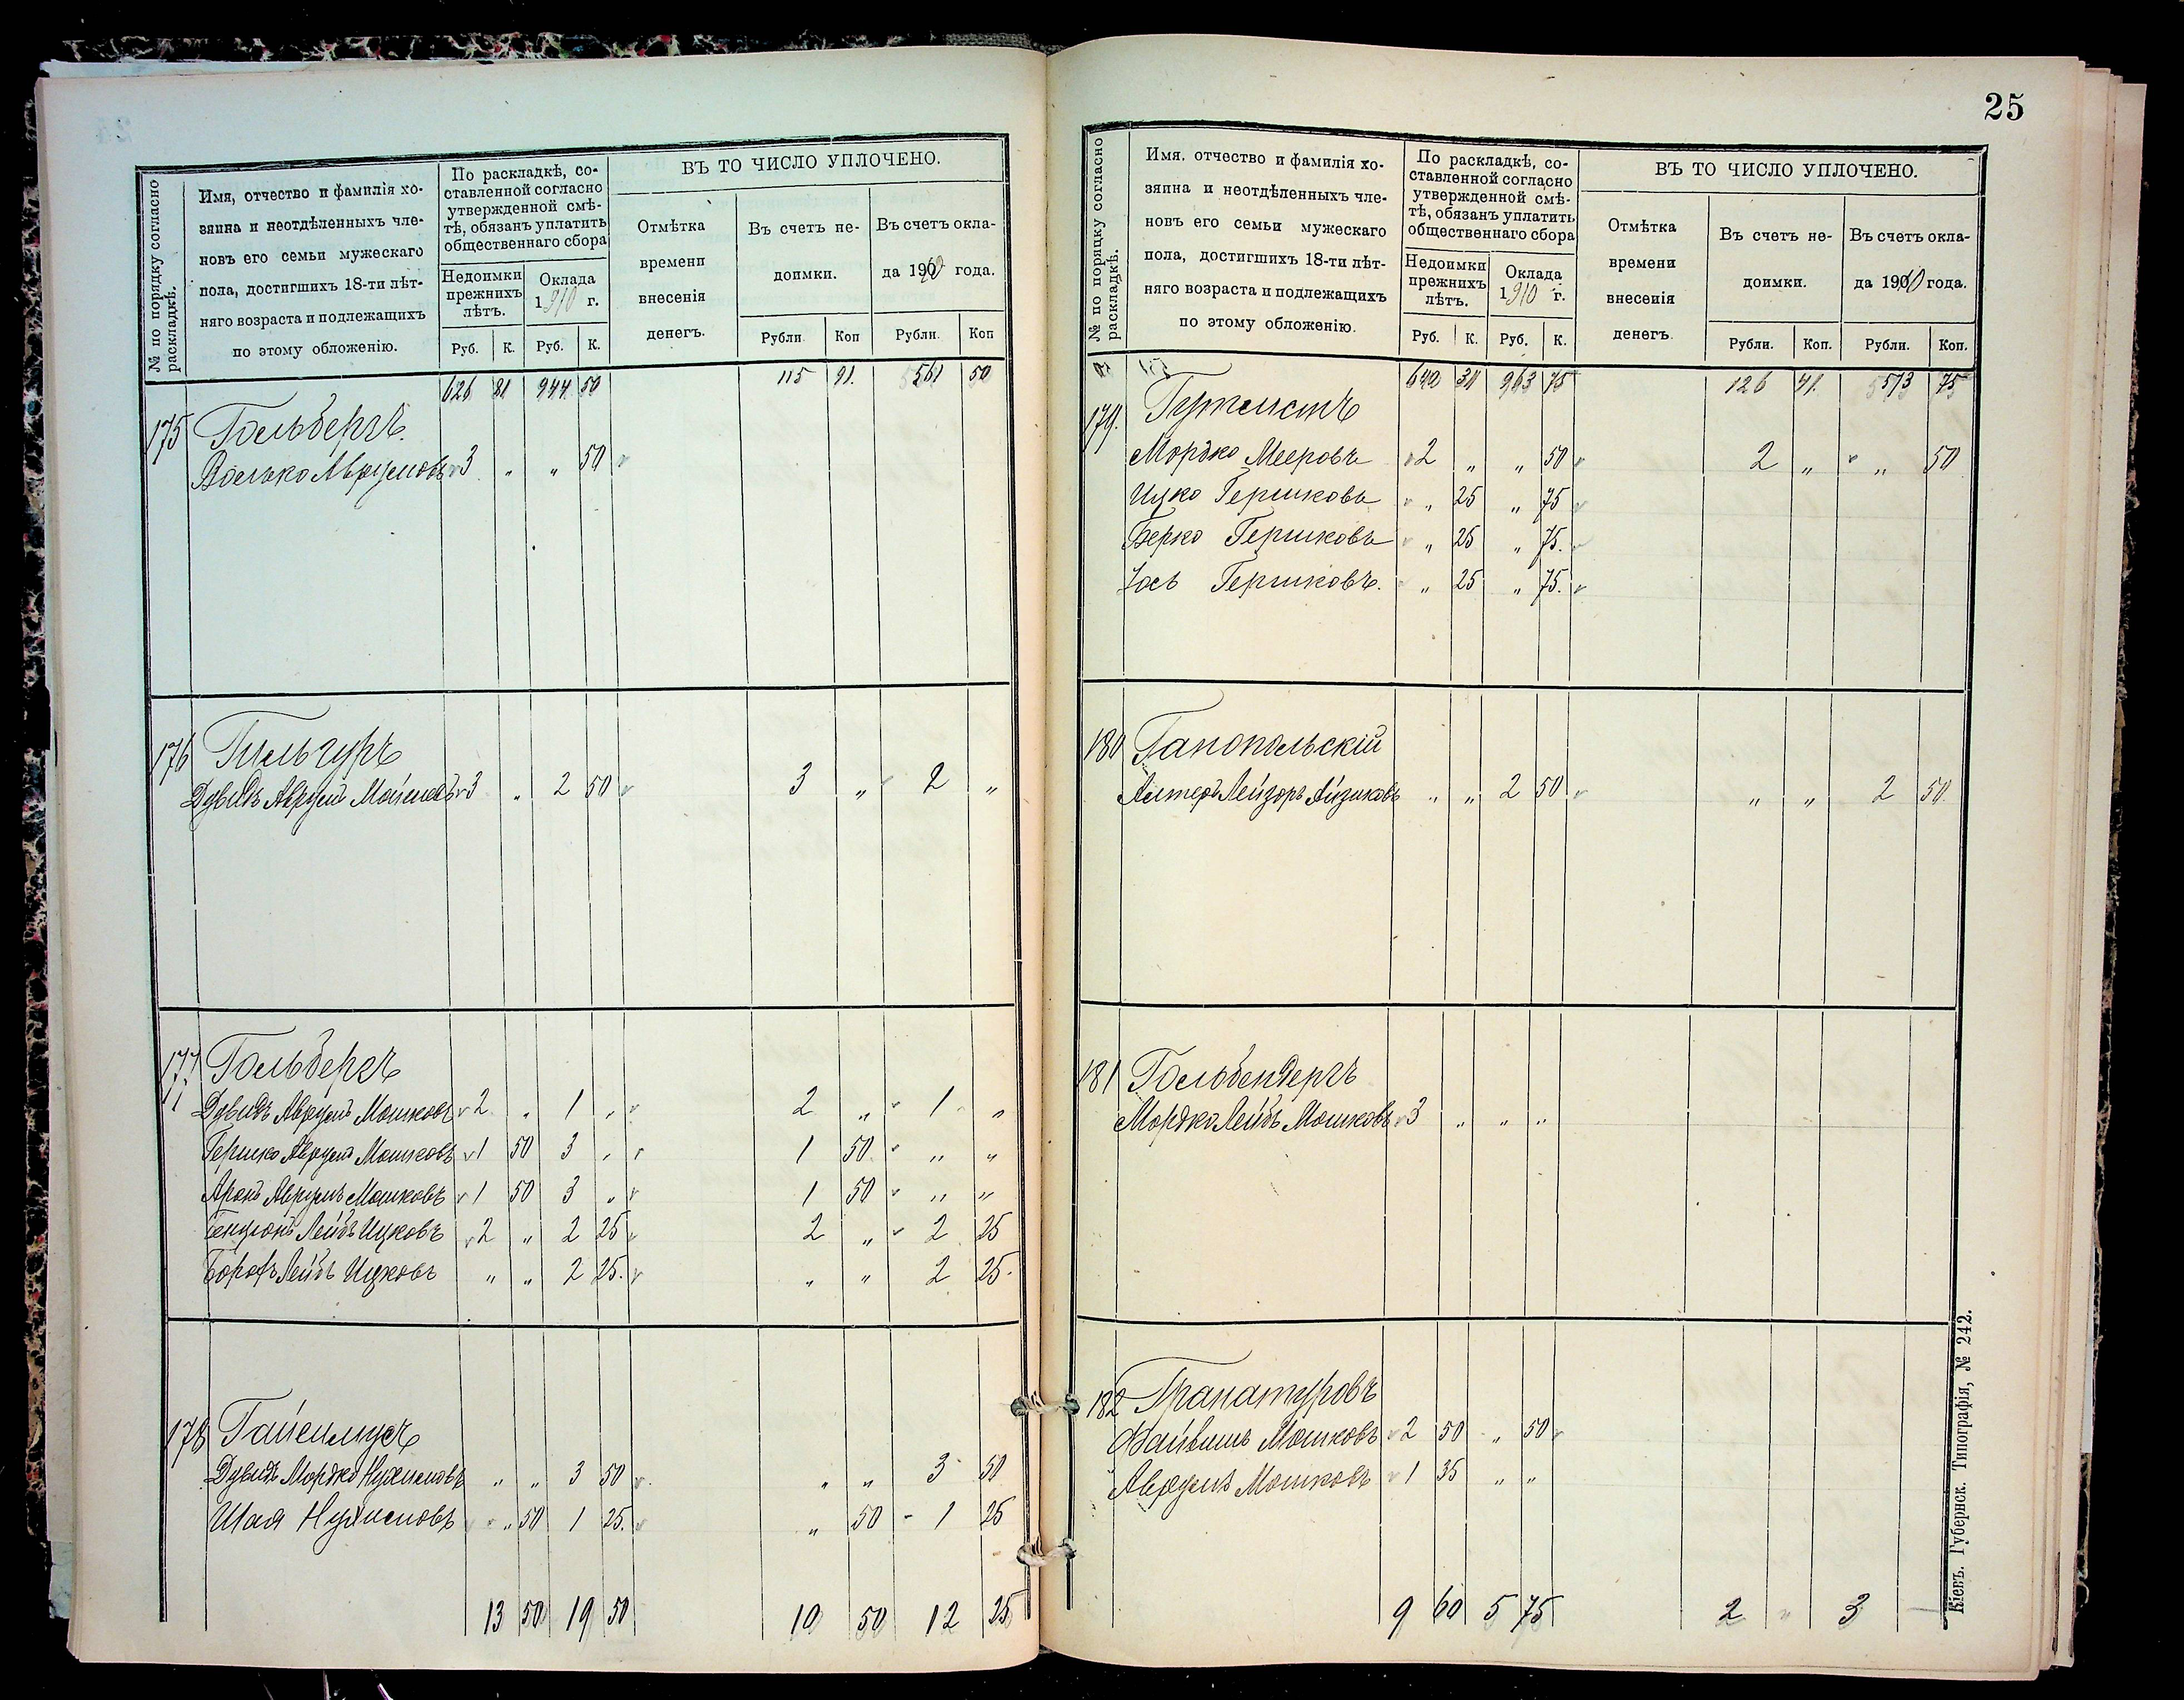 № по порядку согласно раскладкѣ.
Имя, отчество и фамилія хо-
зяина и неотдѣленныхъ чле-
новъ его семьи мужескаго
пола, достигшихъ 18-ти лѣт-
няго возраста и подлежащихъ
по этому обложенію.
По раскладкѣ, со-
ставленной согласно
утвержденной смѣ-
тѣ, обязанъ уплатить
общественнаго сбора
Недоимки прежнихъ лѣтъ.
Оклада 1910 г.
Руб. К. Руб. К.
ВЪ ТО ЧИСЛО УПЛОЧЕНО.
Отмѣтка времени внесенія денегъ.
Въ счетъ недоимки.
Въ счетъ оклада 1910 года.
Рубли Коп Рубли. Коп
626 81 944 50 115 91. 561 50
175 Гольбергъ.
Волько Аврумовъ 3 „ „ 50
176 Гильгуръ
Дувидъ Аврумъ 3 „ 2 50 3 „ 2 „
177 Гольбергъ
Дувидъ Аврумъ Мошковъ 2 „ 1 „ 2 „ 1 „
Гершко Аврумъ Мошковъ 1 50 3 „ 1 50 „ „
Аронъ Аврумъ Мошковъ 1 50 3 „ 1 50 „ „
Бенціонъ Лейбъ Ицковъ 2 „ 2 25 2 „ 2 25
Борохъ Лейбъ Ицковъ „ „ 2 25. „ „ 2 25.
178
Дувидъ Мордко Нухимовъ „ „ 3 50 „ „ 3 50
Шая Нухимовъ „ 50 1 25. „ 50 - 1 25
13 50 19 50 10 50 12 25
25
№ по порядку согласно раскладкѣ.
Имя, отчество и фамилія хо-
зяина и неотдѣленныхъ чле-
новъ его семьи мужескаго
пола, достигшихъ 18-ти лѣт-
няго возраста и подлежащихъ
по этому обложенію.
По раскладкѣ, со-
ставленной согласно
утвержденной смѣ-
тѣ, обязанъ уплатить
общественнаго сбора
Недоимки прежнихъ лѣтъ.
Оклада 1910 г.
Руб. К. Руб. К.
ВЪ ТО ЧИСЛО УПЛОЧЕНО.
Отмѣтка времени внесенія денегъ.
Въ счетъ недоимки.
Въ счетъ оклада 1910 года.
Рубли. Коп. Рубли. Коп.
640 31 963 75 126 41. 573 75
179.
Мордко Мееровъ 2 „ „ 50 2 „ „ 50
Ицко Гершковъ „ 25 „ 75
Берко Гершковъ „ 25 „ 75.
Іось Гершковъ. „ 25 „ 75.
180 Ганопольскій
Алтеръ Лейзоръ Айзиковъ „ „ 2 50 „ „ 2 50
181 Гольбендергъ
Мордко Лейбъ Мошковъ 3 „ „ „
182 Гранатуровъ
Файвишъ Мошковъ 2 50 „ 50
Аврумъ Мошковъ 1 35 „ „
9 60 5 75 2 „ 3 —
Кіевъ. Губернск. Типографія, № 242.